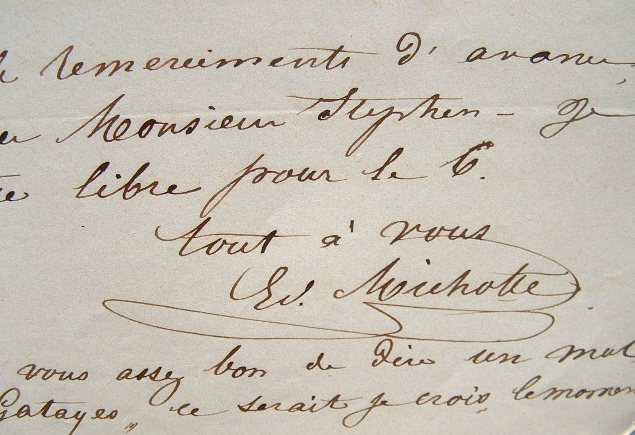 remerciments d'avance,
Monsieur Stephen - je
libre pour le 6.
tout à vous
Ed. Michotte
vous assez bon de dire un mot
Gatayes„ ce serait je crois, le momen